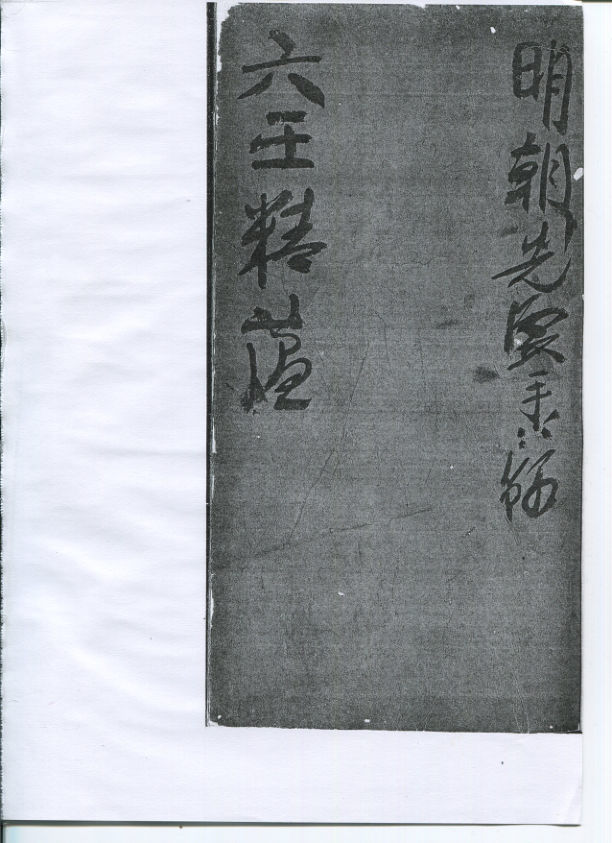 明朝先賢秉
六壬精蘊